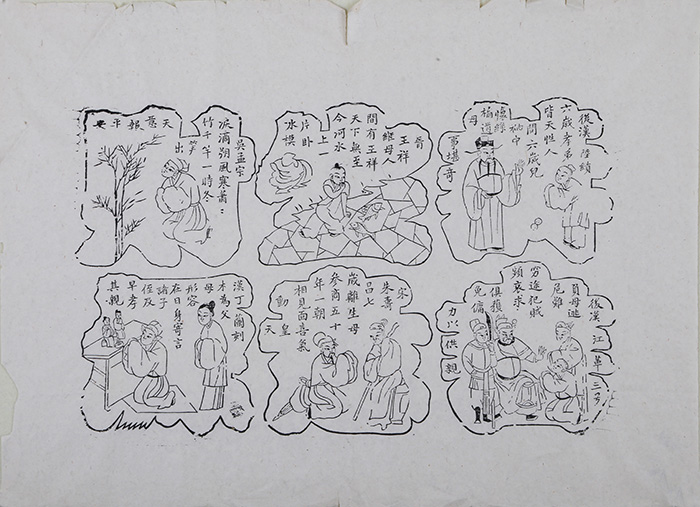 後漢 陸績
六歲孝弟
皆天性人
間六歲兒
袖中
懷綠
橘遺
母
事堪奇
晉
王祥
繼母人
間有王祥
天下無至
今河水
上一
片卧
冰模
吳孟宗
淚滴朔風寒蕭:
竹千竿一時冬
笋
出
天意報平安
後漢江革三
負母逃
危難
窮途犯賊
頻哀求
俱獲
免傭
力以供親
宋
朱壽
昌七
歲離生母
參商五十
年一朝
相見面喜氣
動皇
天
漢丁蘭刻
木為父
母
形容
在日身寄言
諸子
侄及
早孝
其親